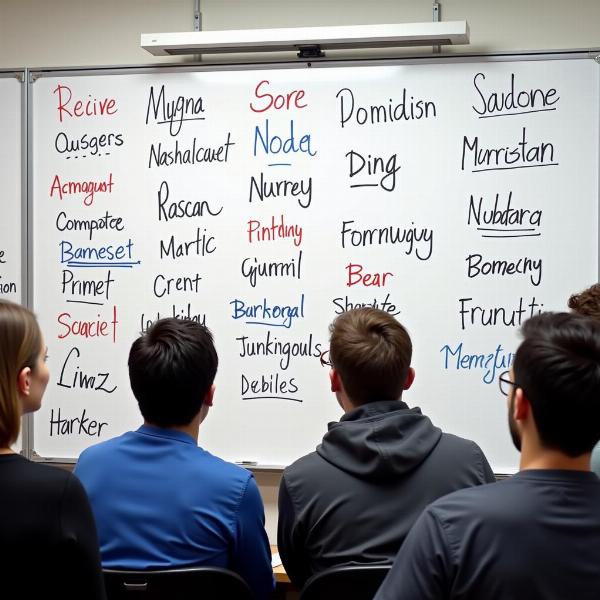 Recive
Ousgers
Acmagust
Compotce
Bameset
Primet
Scaciet
Linaz
Harker
Mygna
Nashalcauet
Rascan
Martic
Crent
Sore
Nodel
Nurrey
Pintdiny
Gjurmil
Barkorgal
Junkingouls
Debiles
Domidisn
Ding
Fornnuvigiy
Bear
Saudone
Murristan
Nubdara
Bomechy